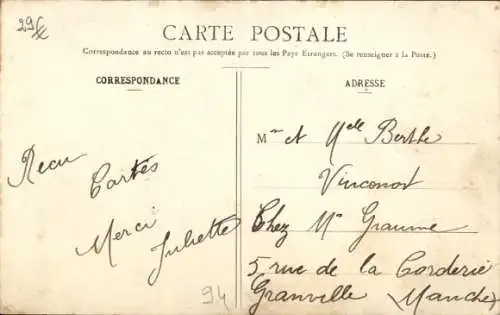 29
CARTE POSTALE
Correspondance au recto n'est pas acceptée par tous les Pays Etrangers. (Se renseigner à la Poste.)
CORRESPONDANCE
Recu
Cartes
Merci
Juliette
94
ADRESSE
Mr et Melle Berthe
Chez Mr
5 rue de la Corderie
Granville Manche